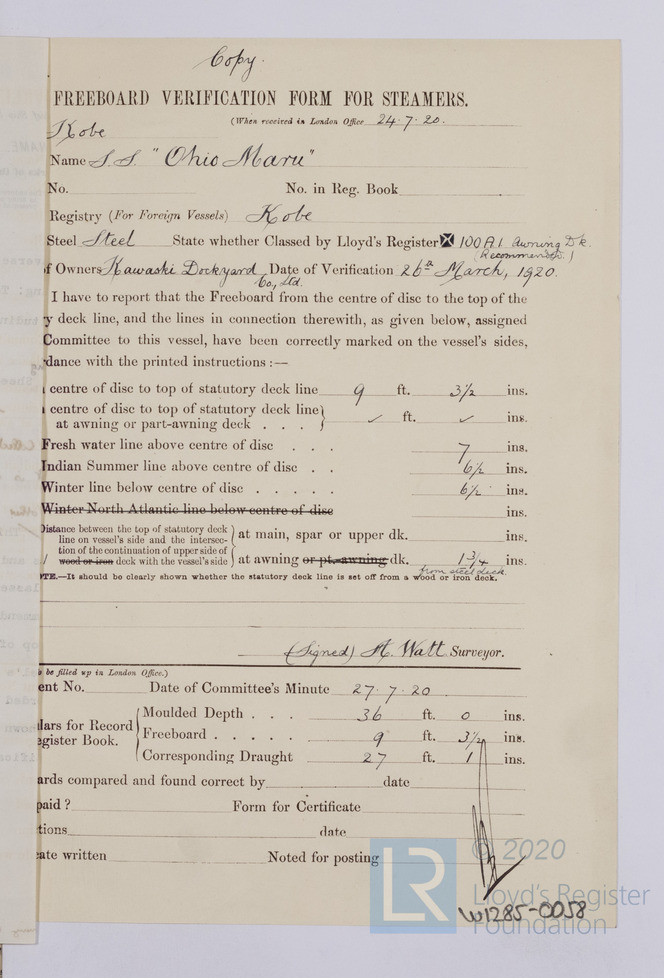 Copy.
FREEBOARD VERIFICATION FORM FOR STEAMERS.
(When received in London Office 24.7.20.
Kobe
Name S.S. "Ohio Maru"
No. No. in Reg. Book
Registry (For Foreign Vessels) Kobe
Steel Steel State whether Classed by Lloyd's Register ✠ 100A1 Awning Dk.
(Recommended.)
f Owners Kawaski Dockyard Date of Verification 26th March, 1920.
Co, Ltd.
I have to report that the Freeboard from the centre of disc to the top of the
y deck line, and the lines in connection therewith, as given below, assigned
Committee to this vessel, have been correctly marked on the vessel's sides,
rdance with the printed instructions :—
centre of disc to top of statutory deck line 9 ft. 3½ ins.
centre of disc to top of statutory deck line
at awning or part-awning deck . . . ✓ ft. ✓ ins.
Fresh water line above centre of disc . . . 7 ins.
Indian Summer line above centre of disc . . 6½ ins.
Winter line below centre of disc . . . . . 6½ ins.
Winter North Atlantic line below centre of disc ins.
Distance between the top of statutory deck
line on vessel's side and the intersec- at main, spar or upper dk. ins.
tion of the continuation of upper side of
wood or iron deck with the vessel's side at awning or pt.-awning dk. 1¾ ins.
from steel deck.
TE.—It should be clearly shown whether the statutory deck line is set off from a wood or iron deck.
(Signed) A. Watt Surveyor.
o be filled up in London Office.)
ent No. Date of Committee's Minute 27.7.20
Moulded Depth . . . 36 ft. 0 ins.
lars for Record
Freeboard . . . . . 9 ft. 3½ ins.
egister Book.
Corresponding Draught 27 ft. 1 ins.
ards compared and found correct by date
paid ? Form for Certificate
tions date
ate written Noted for posting
© 2020
LR
Lloyd's Register
Foundation
W1285-0058